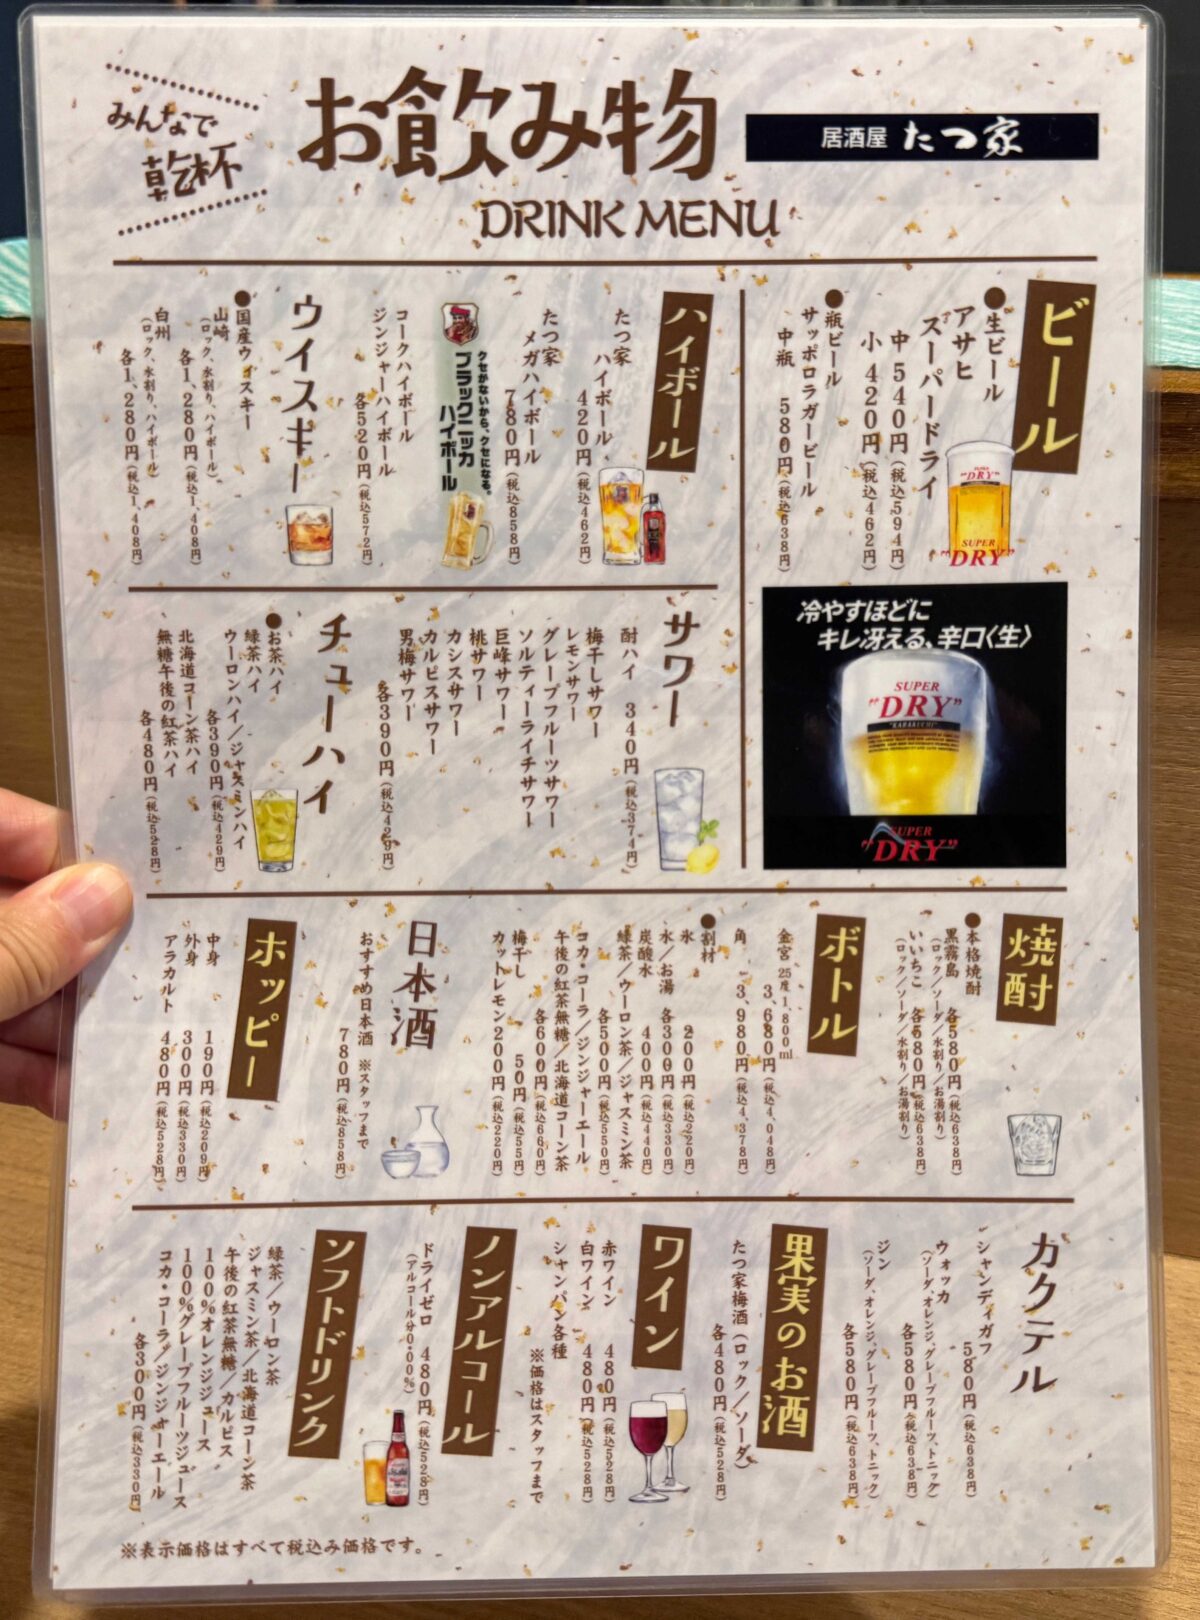 みんなで
乾杯
お飲み物
居酒屋 たつ家
DRINK MENU
ビール
●生ビール
アサヒ
スーパードライ
中 540円(税込594円)
小 420円(税込462円)
●瓶ビール
サッポロラガービール
中瓶 580円(税込638円)
SUPER
"DRY"
SUPER
"DRY"
冷やすほどに
キレ冴える、辛口〈生〉
SUPER
"DRY"
"KARAKUCHI"
SUPER
"DRY"
ハイボール
たつ家
ハイボール
420円(税込462円)
たつ家
メガハイボール
780円(税込858円)
クセがないから、クセになる。
ブラックニッカ
ハイボール
コークハイボール
ジンジャーハイボール
各520円(税込572円)
ウイスキー
●国産ウイスキー
山崎
(ロック、水割り、ハイボール)
各1,280円(税込1,408円)
白州
(ロック、水割り、ハイボール)
各1,280円(税込1,408円)
サワー
酎ハイ 340円(税込374円)
梅干しサワー
レモンサワー
グレープフルーツサワー
ソルティーライチサワー
巨峰サワー
桃サワー
カシスサワー
カルピスサワー
男梅サワー
各390円(税込429円)
チューハイ
●お茶ハイ
緑茶ハイ
ウーロンハイ/ジャスミンハイ
各390円(税込429円)
北海道コーン茶ハイ
無糖午後の紅茶ハイ
各480円(税込528円)
焼酎
●本格焼酎
黒霧島 各580円(税込638円)
(ロック/ソーダ/水割り/お湯割り)
いいちこ 各580円(税込638円)
(ロック/ソーダ/水割り/お湯割り)
ボトル
金宮 25度1,800ml
3,680円(税込4,048円)
角 3,980円(税込4,378円)
●割材
氷 200円(税込220円)
水/お湯 各300円(税込330円)
炭酸水 400円(税込440円)
緑茶/ウーロン茶/ジャスミン茶
各500円(税込550円)
コカ・コーラ/ジンジャーエール
午後の紅茶無糖/北海道コーン茶
各600円(税込660円)
梅干し 50円(税込55円)
カットレモン200円(税込220円)
日本酒
おすすめ日本酒 ※スタッフまで
780円(税込858円)
ホッピー
中身 190円(税込209円)
外身 300円(税込330円)
アラカルト 480円(税込528円)
カクテル
シャンディガフ
580円(税込638円)
ウォッカ
(ソーダ、オレンジ、グレープフルーツ、トニック)
各580円(税込638円)
ジン
(ソーダ、オレンジ、グレープフルーツ、トニック)
各580円(税込638円)
果実のお酒
たつ家梅酒(ロック/ソーダ)
各480円(税込528円)
ワイン
赤ワイン 480円(税込528円)
白ワイン 480円(税込528円)
シャンパン各種
※価格はスタッフまで
ノンアルコール
ドライゼロ 480円(税込528円)
(アルコール分0.00%)
ソフトドリンク
緑茶/ウーロン茶
ジャスミン茶/北海道コーン茶
午後の紅茶無糖/カルピス
100%オレンジジュース
100%グレープフルーツジュース
コカ・コーラ/ジンジャーエール
各300円(税込330円)
※表示価格はすべて税込み価格です。